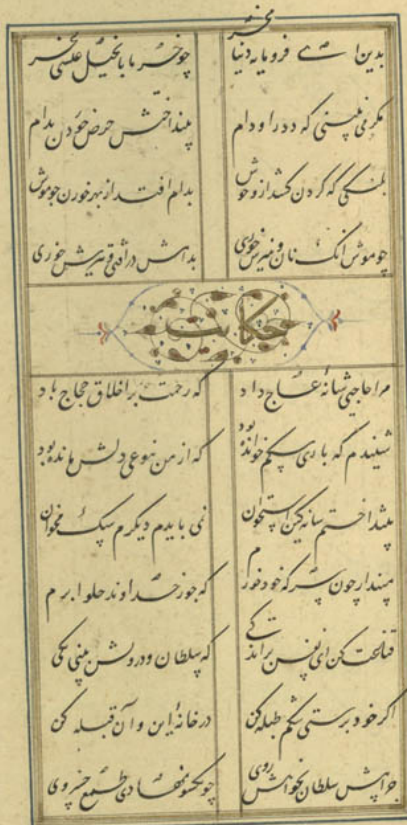 بدین ای فرومایه دنیا مخر
چو خر ما بانجیل عیسی بخر
مگر می نبینی که دد را و دام
نینداختش جز حرص خوردن بدام
پلنگی که گردن کشد از وحوش
بدام افتد از بهر خوردن چو موش
چو موش آنکه نان و پنیرش خوری
بدامش درافتی و تیرش خوری
حکایت
مرا حاجیی شانه عاج داد
که رحمت بر اخلاق حجاج باد
شنیدم که باری سگم خوانده بود
که از من بنوعی دلش مانده بود
بینداختم شانه کین استخوان
نمی بایدم دیگرم سگ مخوان
مپندار چون سرکه خود خورم
که جور خداوند حلوا برم
قناعت کن ای نفس بر اندکی
که سلطان و درویش بینی یکی
اگر خود پرستی شکم طبله کن
در خانه این و آن قبله کن
چرا پیش سلطان بخواهش روی
چو یکسو نهادی طمع خسروی